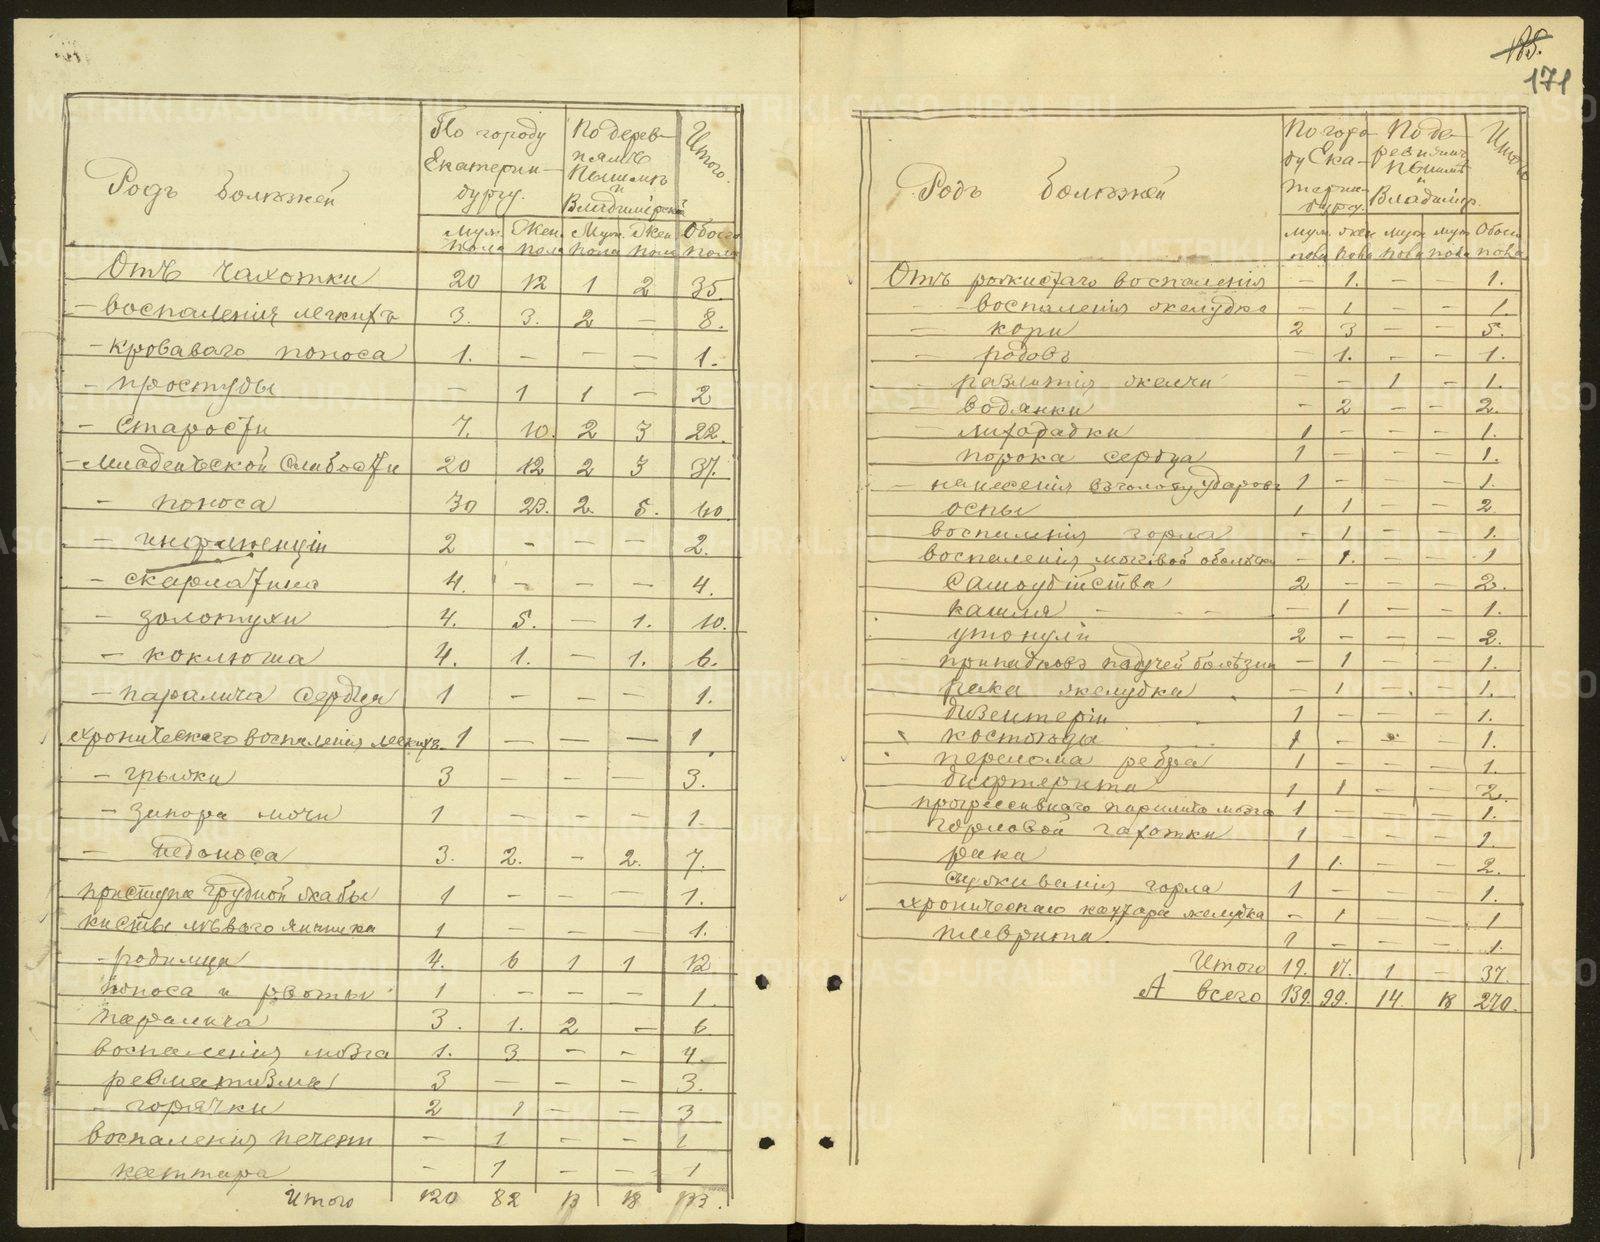 185.
171
Родъ болѣзней
По городу Екатерин-бургу.
По дерев-нямъ Пышмѣ и Владимірской
Итого.
Муж. пола Жен. пола Муж. пола Жен. пола Обоего пола
Отъ чахотки 20 12 1 2 35.
— воспаленія легкихъ 3. 3. 2 — 8.
— кроваваго поноса 1. — — — 1.
— простуды — 1 1 — 2
— старости 7. 10. 2 3 22.
— младенческой слабости 20 12 2 3 37.
— поноса 30 23. 2. 5. 60.
— инфлюенціи 2 — — — 2.
— скарлатина 4. — — — 4.
— золотухи 4. 5. — 1. 10.
— коклюша 4. 1. — 1. 6.
— паралича сердца 1 — — — 1.
хроническаго воспаленія легкихъ 1 — — — 1.
— грыжи 3 — — — 3.
— запора мочи 1 — — — 1.
— недоноса 3. 2. — 2. 7.
приступа грудной жабы 1 — — — 1.
кисты лѣваго яичника 1 — — — 1.
— родимца 4. 6 1 1 12.
поноса и рвоты 1 — — — 1.
паралича 3. 1. 2 — 6
воспаленія мозга 1. 3 — — 4.
ревматизма 3 — — — 3.
— горячки 2 1 — — 3
воспаленія печени — 1 — — 1
каттара — 1 — — 1
Итого 120 82 13 18
Родъ болѣзней
По горо-ду Ека-терин-бургу.
По де-ревнямъ Пышмѣ и Владимір.
Итого
муж. пола жен. пола муж. пола муж. пола Обоего пола
Отъ рожистаго воспаленія — 1. — — 1.
— воспаленія желудка — 1 — — 1.
— кори 2 3 — — 5.
— родовъ — 1. — — 1.
— разлитія желчи — — 1 — 1.
— водянки — 2 — — 2.
— лихорадки 1 — — — 1.
порока сердца 1 — — — 1.
— нанесенія въ голову ударовъ 1 — — — 1.
оспы 1 1 — — 2
воспаленія горла — 1 — — 1.
воспаленія мозговой оболочки — 1. — — 1
самоубійства 2 — — — 2.
кашля — — 1 — — 1.
утонули 2 — — — 2.
припадковъ падучей болѣзни — 1 — — 1.
рака желудка — 1 — — 1.
дизентеріи 1 — — — 1.
костоѣды 1 — — — 1.
перелома ребра 1 — — — 1.
дифтерита 1 1 — — 2.
прогрессивнаго паралича мозга 1 — — — 1.
горловой чахотки 1 — — — 1.
рака 1 1. — — 2.
съуживанія горла 1 — — — 1.
хроническаго каттара желудка — 1 — — 1
плеврита. 1 — — — 1.
Итого 19. 17. 1 — 37.
А всего 139. 99. 14. 18 270.